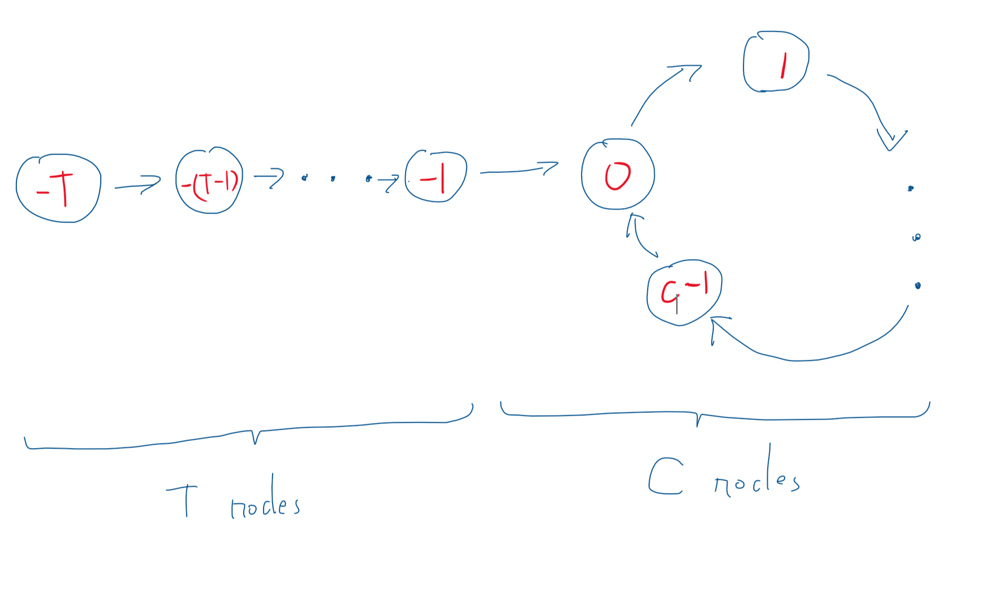 1
-T -(T-1) -1 0
C-1
T nodes
C nodes